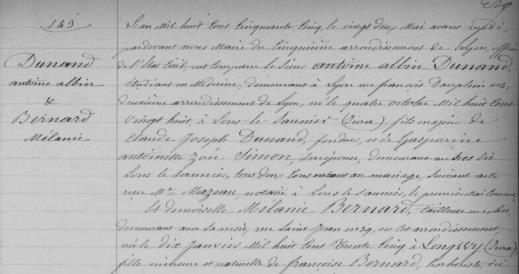 145
Dunand
antoine albin
&
Bernard
Mélanie
L'an Mil huit Cent Cinquante Cinq, le vingt deux Mai avant midi,
pardevant nous Maire du Cinquième arrondissement de Lyon, officier
de l'Etat Civil, ont comparu le Sieur antoine albin Dunand,
Etudiant en Médecine, demeurant à Lyon rue françois Dauphin
deuxième arrondissement de Lyon, né le quatre octobre Mil huit Cent
vingt huit, à Lons-le-Saunier (Jura) fils majeur de
Claude Joseph Dunand, fondeur, et de Gasparine
antoinette Zoée Simon, demeurant
Lons le Saunier, tous deux Consentant au mariage, suivant acte
reçu Me Mazeau, notaire à Lons le Saunier, le premier Mai Courant,
Et demoiselle Mélanie Bernard, tailleuse
demeurant avec Sa mère, rue Saint Jean no 29, en Ce arrondissement,
née le Dix Janvier Mil huit Cent Trente Cinq à Longwy (Jura)
fille mineure et naturelle de françoise Bernard, herboriste, ici